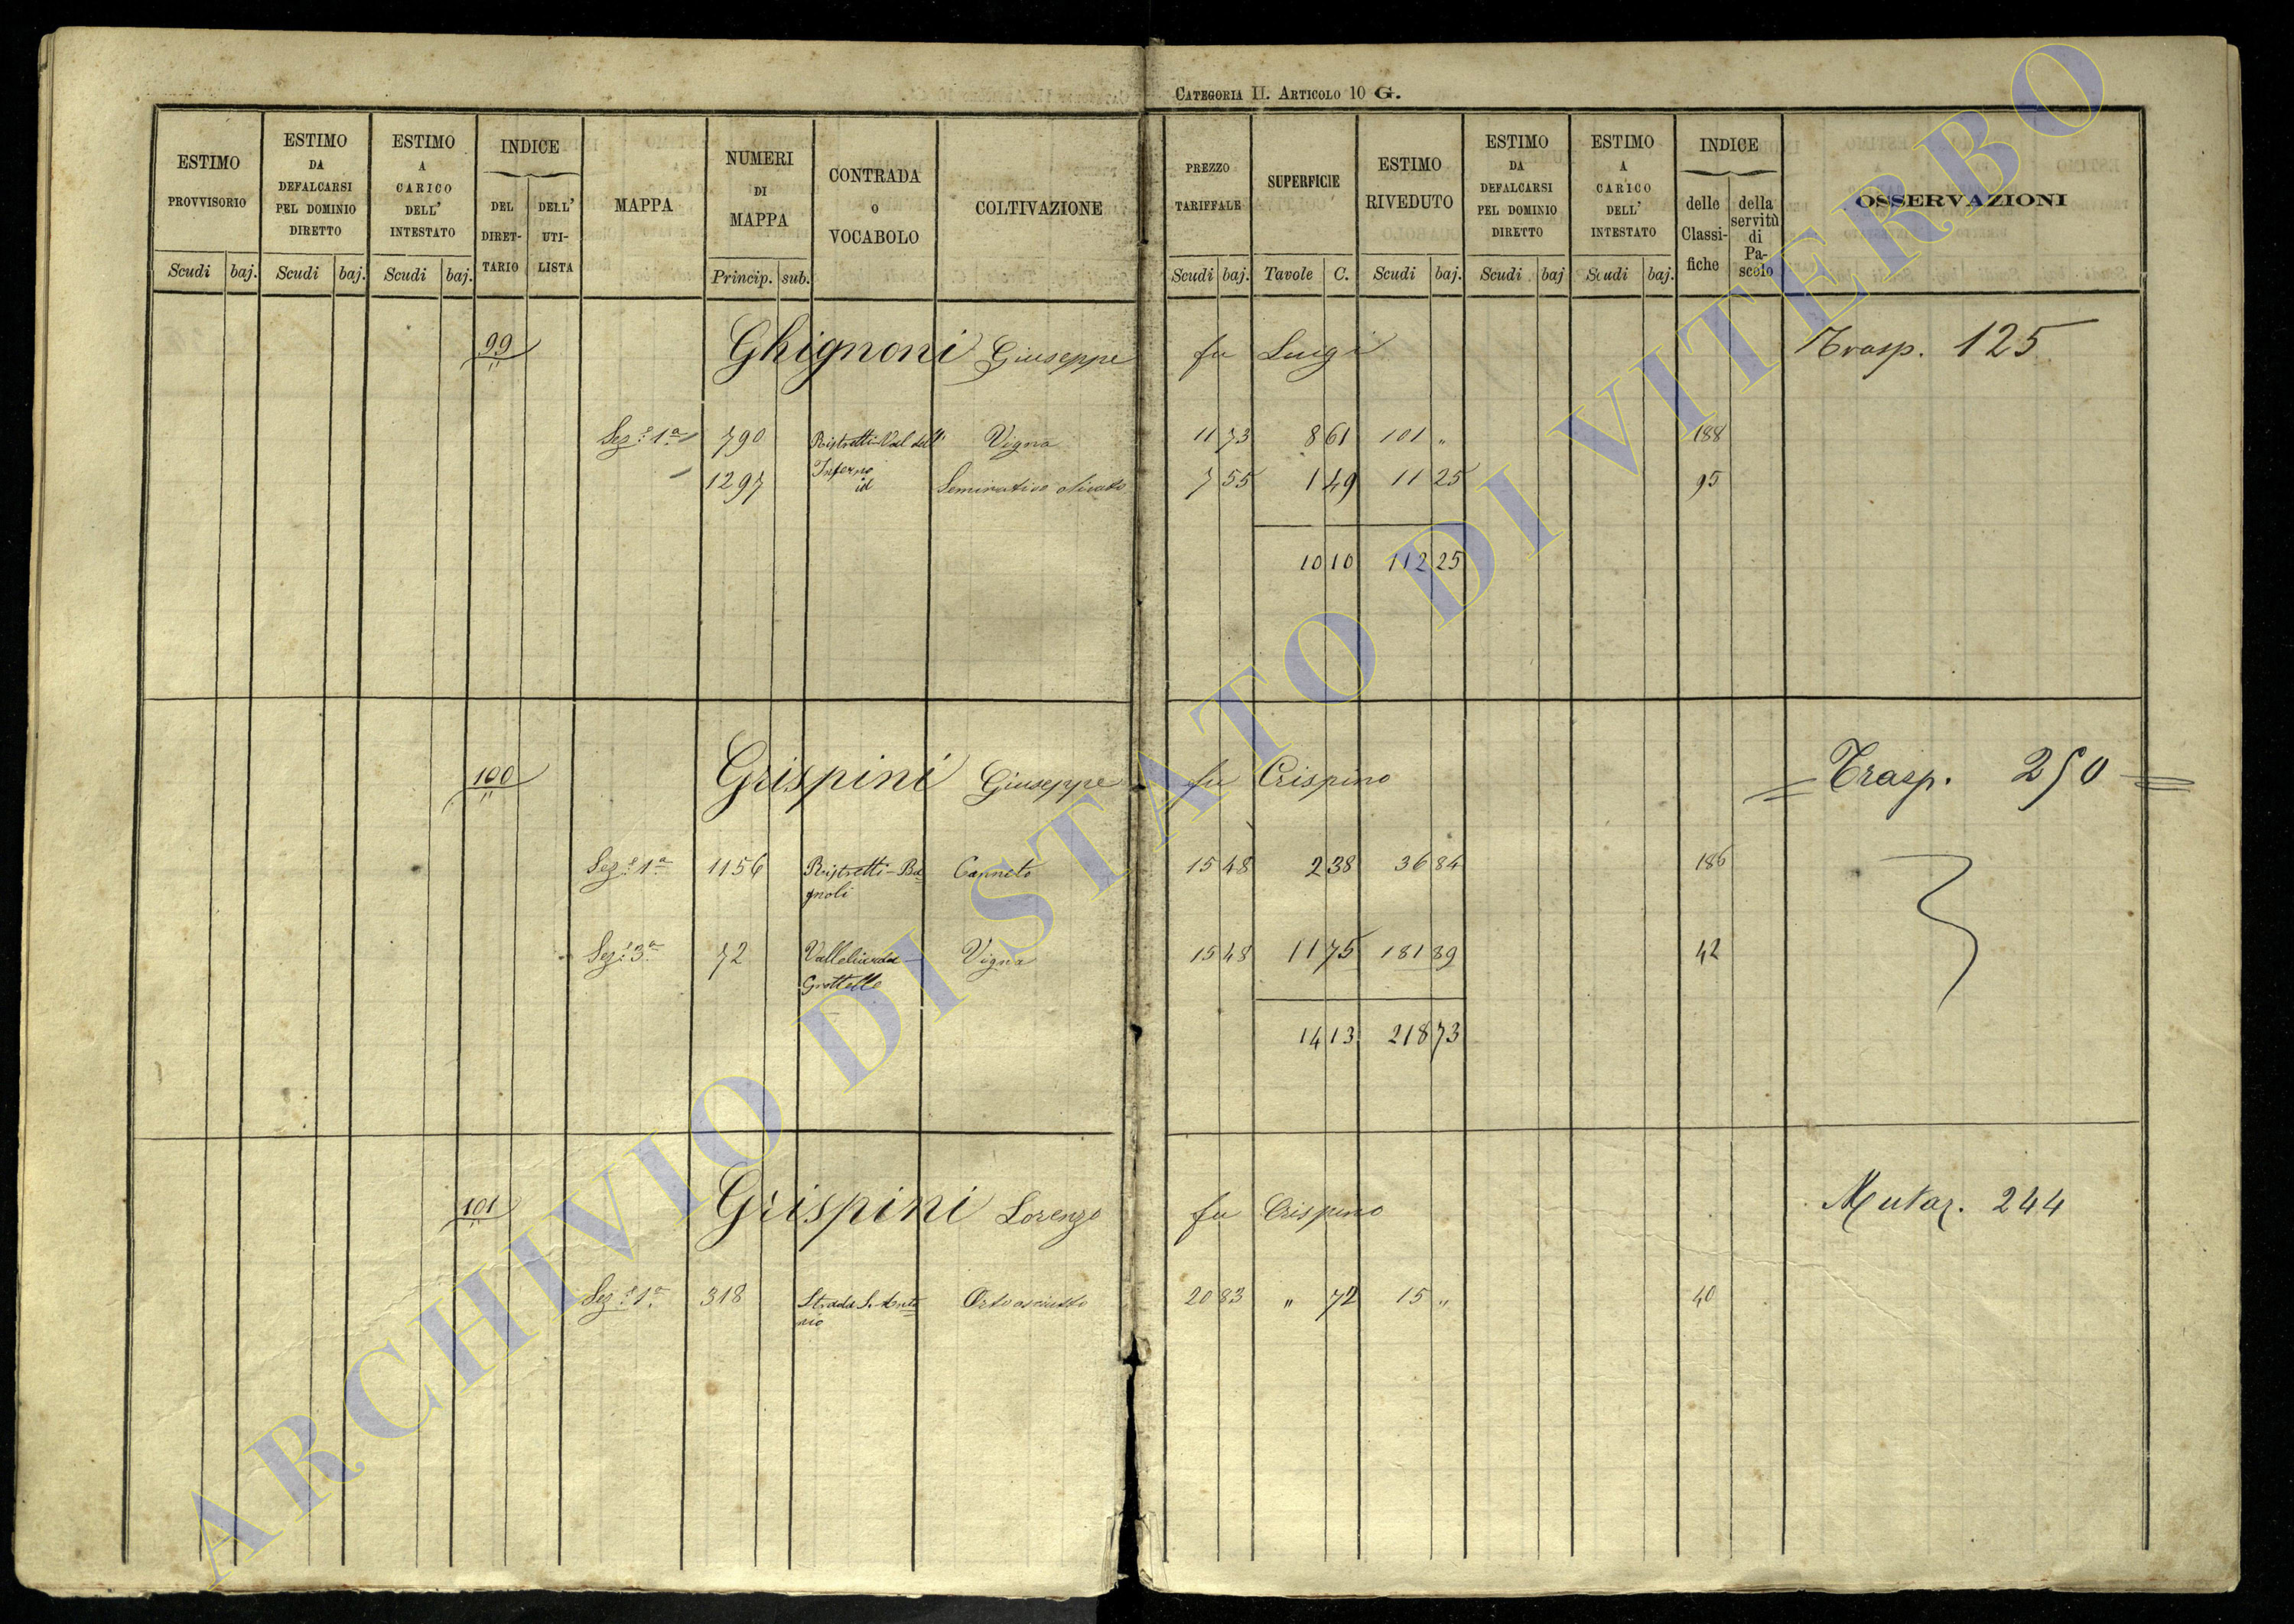 CATEGORIA II. ARTICOLO 10 G.
ESTIMO PROVVISORIO
Scudi baj.
ESTIMO DA DEFALCARSI PEL DOMINIO DIRETTO
Scudi baj.
ESTIMO A CARICO DELL' INTESTATO
Scudi baj.
INDICE
DEL DIRET- TARIO
DELL' UTI- LISTA
MAPPA
NUMERI DI MAPPA
Princip. sub.
CONTRADA O VOCABOLO
COLTIVAZIONE
PREZZO TARIFFALE
Scudi baj.
SUPERFICIE
Tavole C.
ESTIMO RIVEDUTO
Scudi baj.
ESTIMO DA DEFALCARSI PEL DOMINIO DIRETTO
Scudi baj
ESTIMO A CARICO DELL' INTESTATO
Scudi baj.
INDICE
delle Classi- fiche
della servitù di Pa- scolo
OSSERVAZIONI
99 Ghignoni Giuseppe fu Luigi Trasp. 125
Sez.e 1a 790 Ristretti-Val dell' Vigna 11 73 8 61 101 " 188
Inferno
1297 id Seminativo olivato 7 55 1 49 11 25 95
10 10 112 25
100 Grispini Giuseppe fu Crispino = Trasp. 250 =
Sez.e 1a 1156 Ristretti-Ba- Canneto 15 48 2 38 36 84 186
gnoli
Sez.e 3a 72 Vigna 15 48 11 75 181 89 42
Grottelle
14 13 218 73
101 Grispini Lorenzo fu Crispino Mutaz. 244
Sez.e 1a 318 Strada S. Anto- Orto asciutto 20 83 " 72 15 " 40
nio
ARCHIVIO DI STATO DI VITERBO